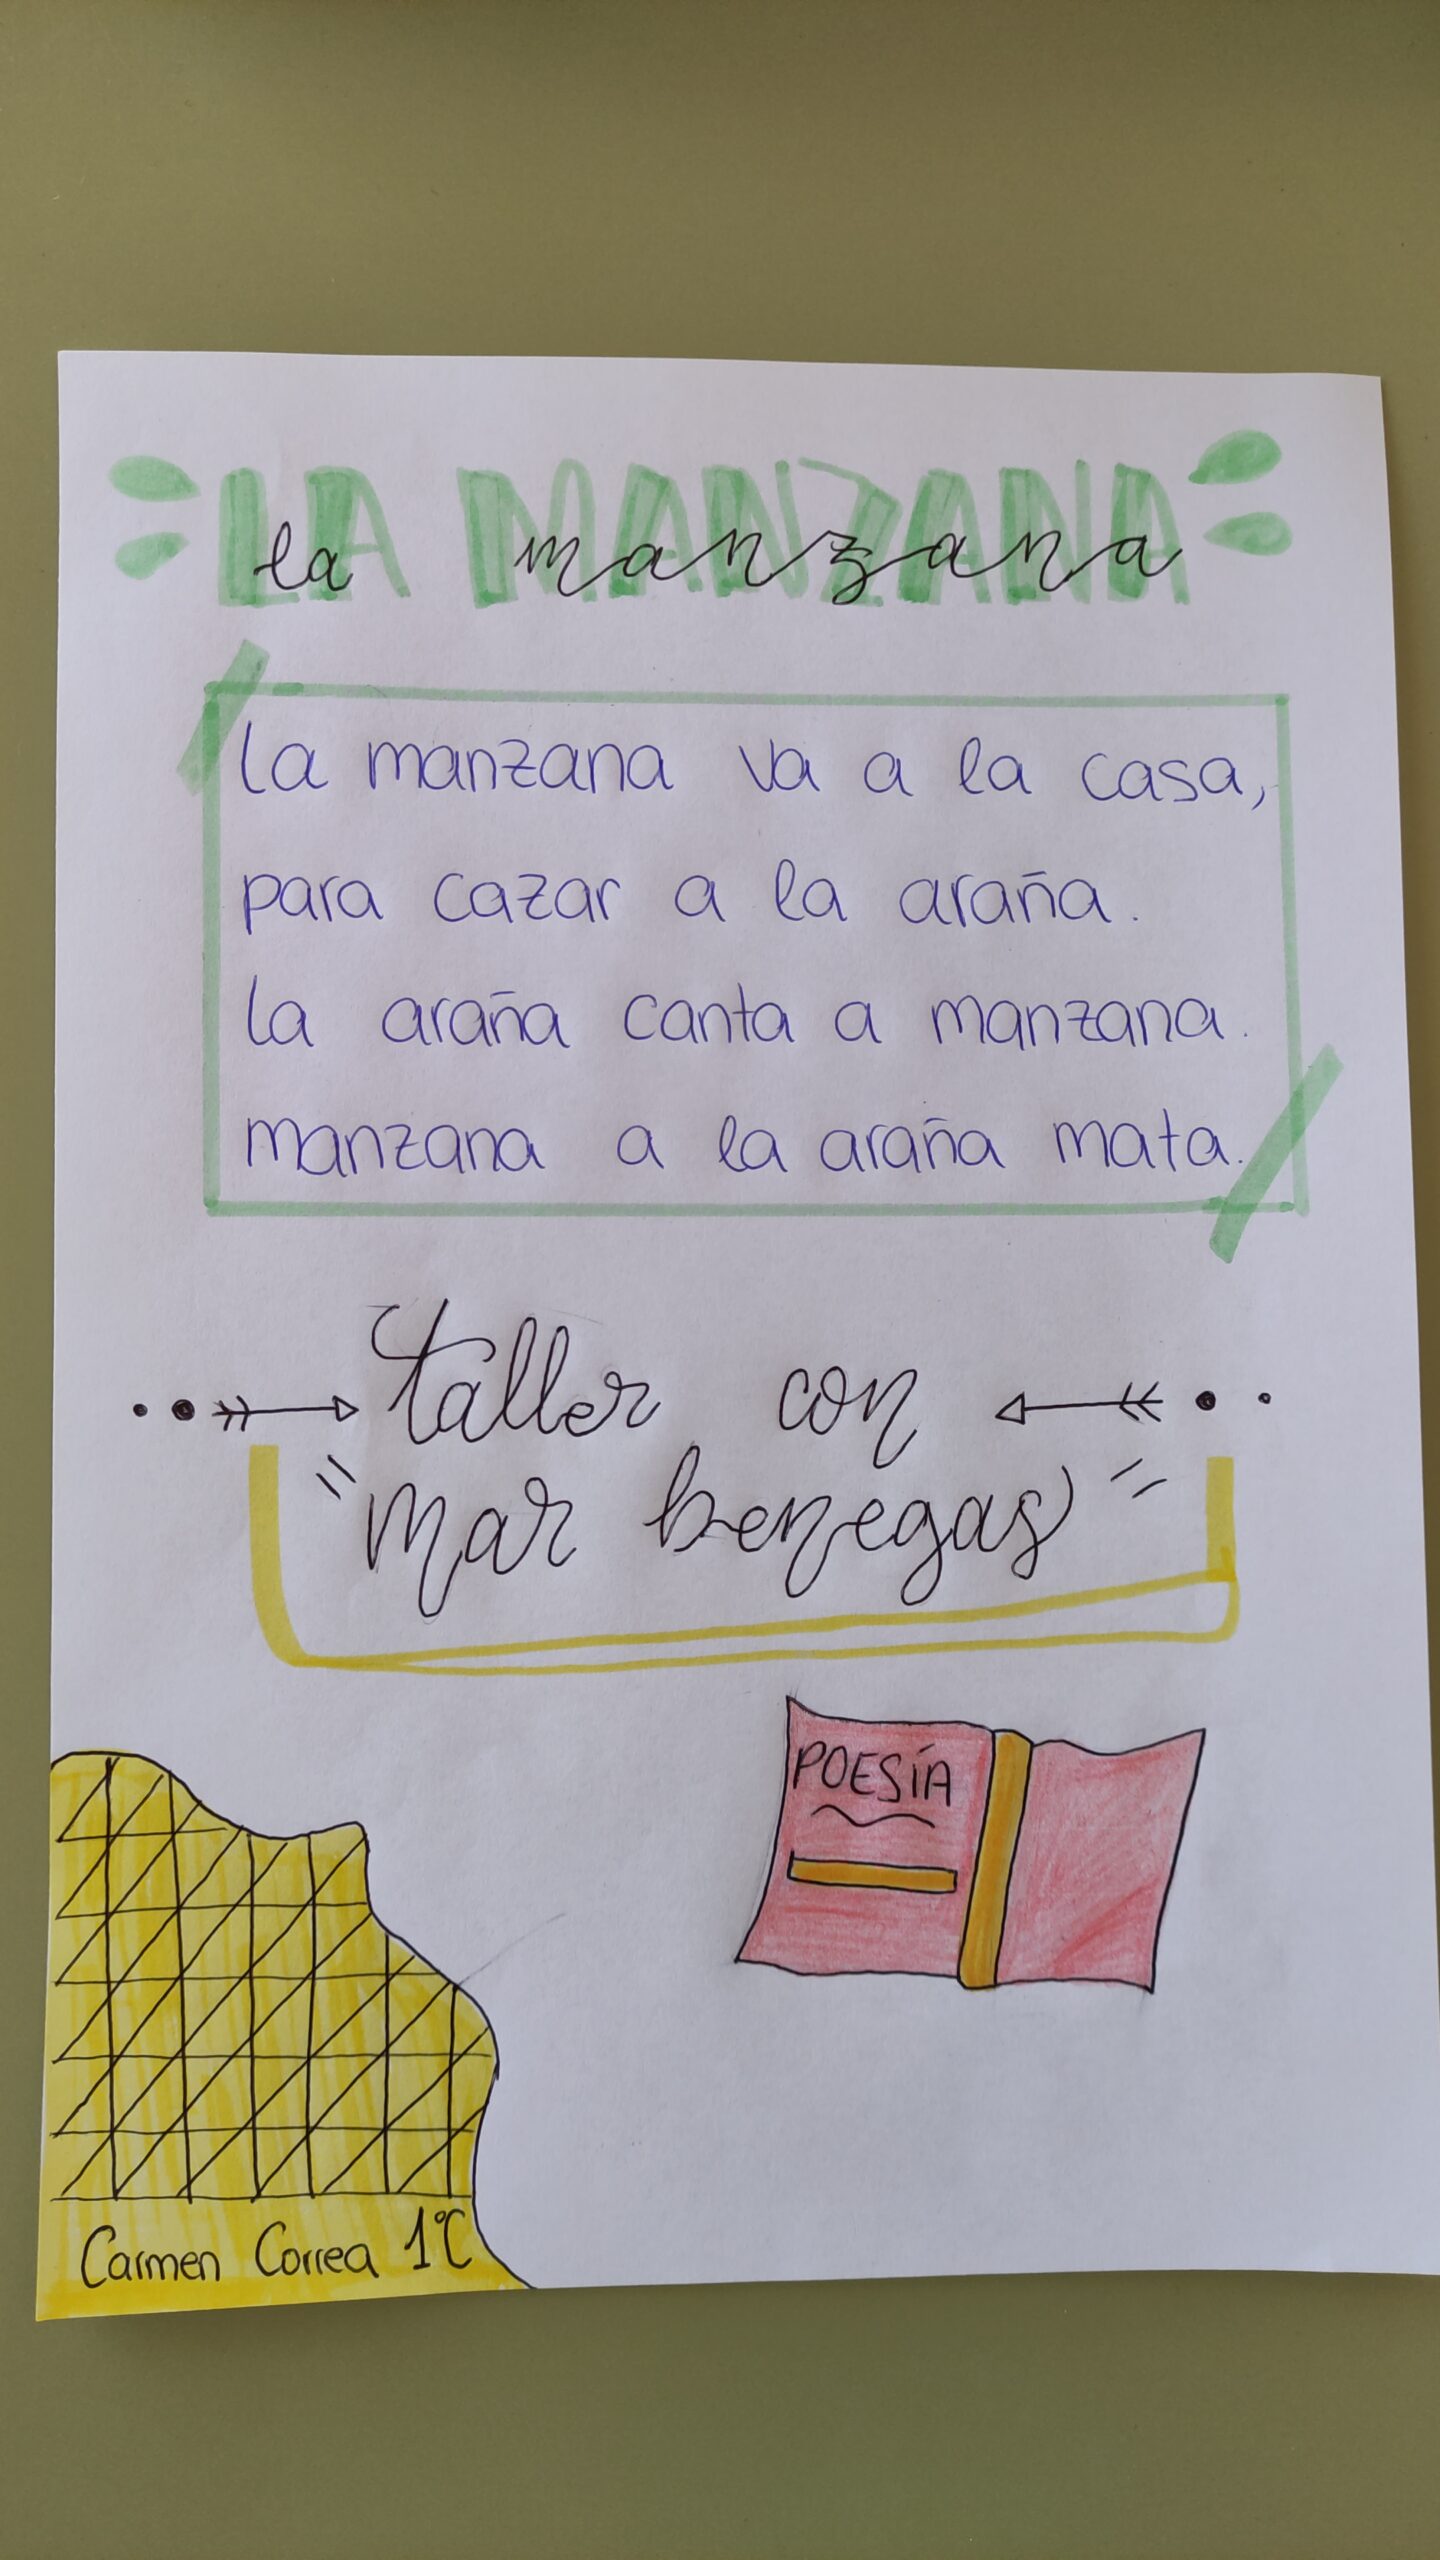 LA MANZANA
la manzana
la manzana va a la casa,
para cazar a la araña.
la araña canta a manzana.
manzana a la araña mata.
taller con
"mar benegas"
POESÍA
Carmen Correa 1ºC